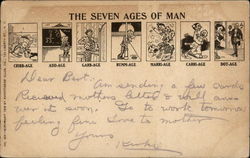 THE SEVEN AGES OF MAN
CRIBB-AGE ADD-AGE GARB-AGE RUMM-AGE MARRI-AGE CARRI-AGE DOT-AGE
Dear Bert: Am sending a few cards
Received mothers letter & will ans-
wer it soon. Go to work tomorrow
feeling fine Love to mother
Yours